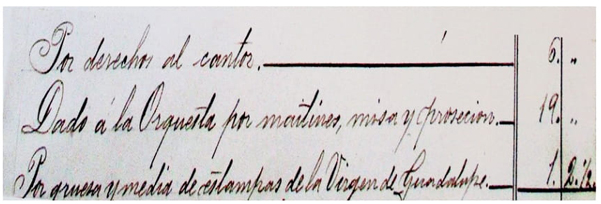 Por derechos al cantor. 6. "
Dado á la Orquesta por maitines, misa y prosecion. 19. "
Por gruesa y media de estampas de la Virgen de Guadalupe. 1. 2. ½.